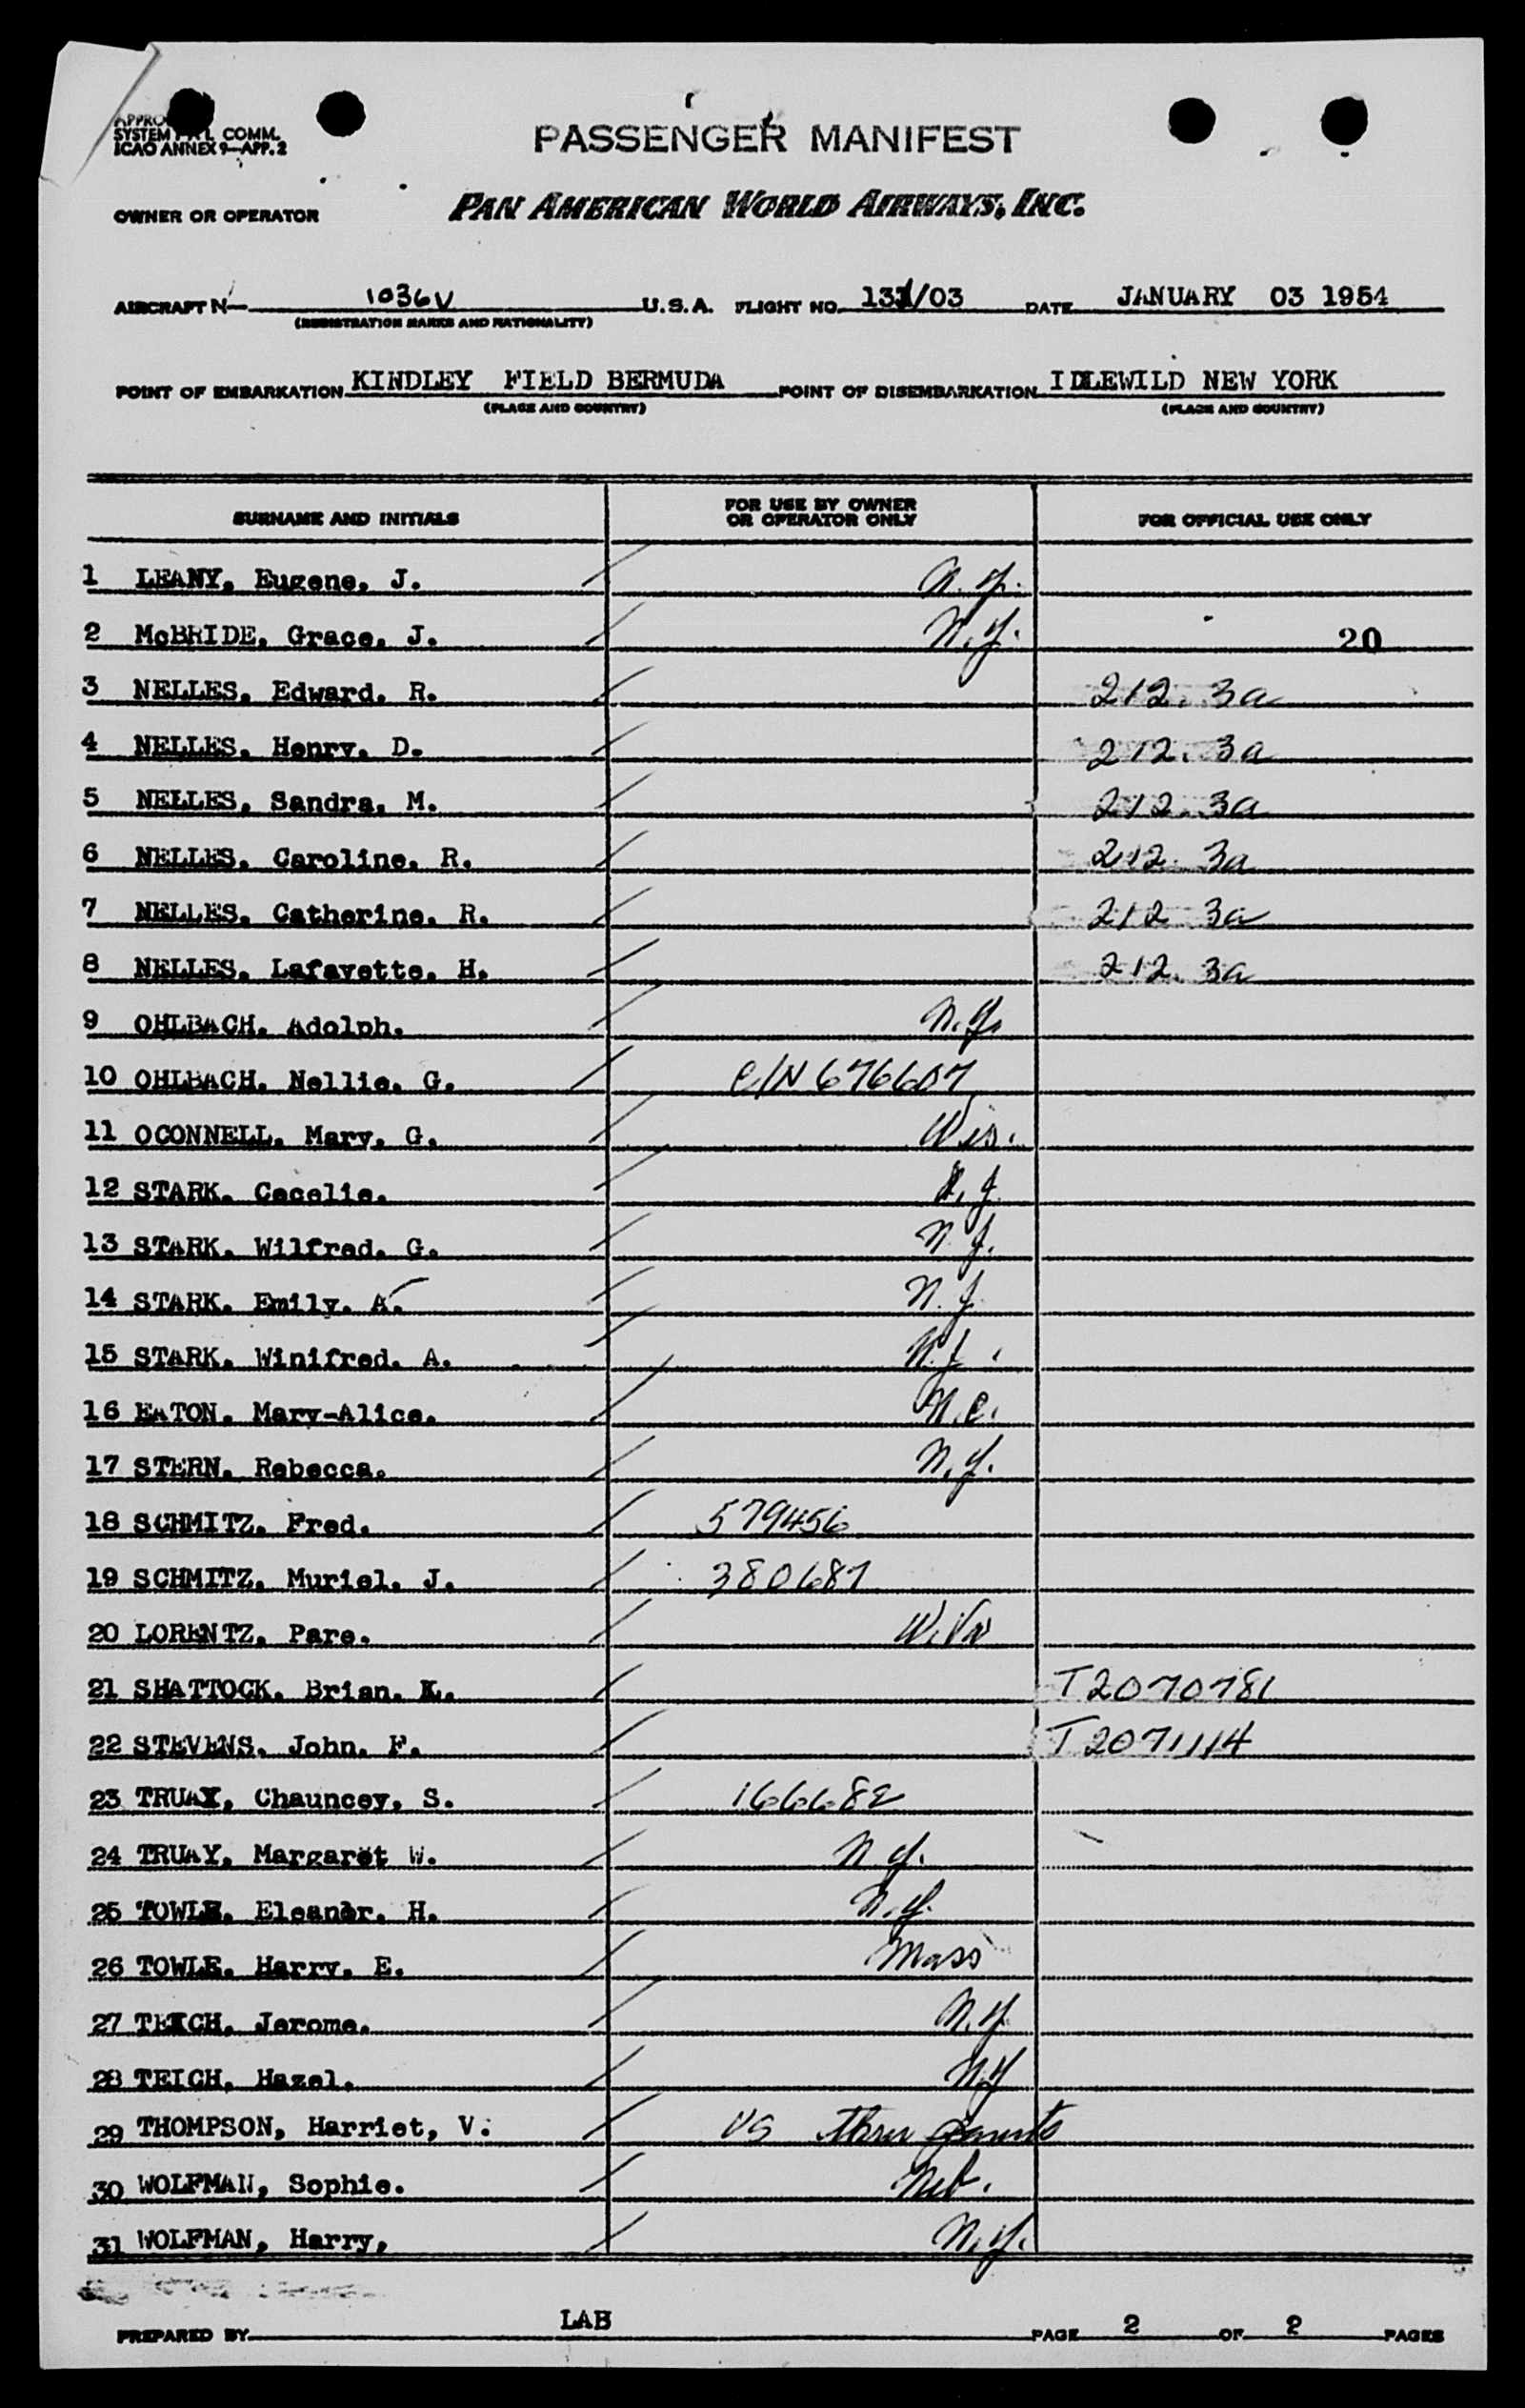 SYSTEM COMM.
ICAO ANNEX 9—APP. 2
PASSENGER MANIFEST
OWNER OR OPERATOR PAN AMERICAN WORLD AIRWAYS, INC.
AIRCRAFT N— 1036V U.S.A. FLIGHT NO. 131/03 DATE JANUARY 03 1954
(REGISTRATION MARKS AND NATIONALITY)
POINT OF EMBARKATION KINDLEY FIELD BERMUDA POINT OF DISEMBARKATION IDLEWILD NEW YORK
(PLACE AND COUNTRY) (PLACE AND COUNTRY)
SURNAME AND INITIALS FOR USE BY OWNER OR OPERATOR ONLY FOR OFFICIAL USE ONLY
1 LEANY, Eugene, J. N.Y.
2 McBRIDE, Grace, J. N.Y. 20
3 NELLES, Edward, R. 212.3a
4 NELLES, Henry, D. 212.3a
5 NELLES, Sandra, M. 212.3a
6 NELLES, Caroline, R. 212.3a
7 NELLES, Catherine, R. 212 3a
8 NELLES, Lafayette, H. 212.3a
9 OHLBACH, Adolph. N.Y.
10 OHLBACH, Nellie, G. C/N 676607
11 OCONNELL, Mary, G. Wis.
12 STARK, Cecelie. N.J.
13 STARK, Wilfred, G. N.J.
14 STARK, Emily, A. N.J.
15 STARK, Winifred, A. N.J.
16 EATON, Mary-Alice. N.C.
17 STERN, Rebecca. N.Y.
18 SCHMITZ, Fred. 579456
19 SCHMITZ, Muriel, J. 380687
20 LORENTZ, Pare. W.Va
21 SHATTOCK, Brian, K. T2070781
22 STEVENS, John, F. T2071114
23 TRUAX, Chauncey, S. 166682
24 TRUAY, Margaret W. N.Y.
25 TOWLE, Eleanor, H. N.Y.
26 TOWLE, Harry, E. Mass
27 TEICH, Jerome. N.Y.
28 TEICH, Hazel. N.Y
29 THOMPSON, Harriet, V. US thru parents
30 WOLFMAN, Sophie. Neb.
31 WOLFMAN, Harry, N.Y.
PREPARED BY LAB PAGE 2 OF 2 PAGES